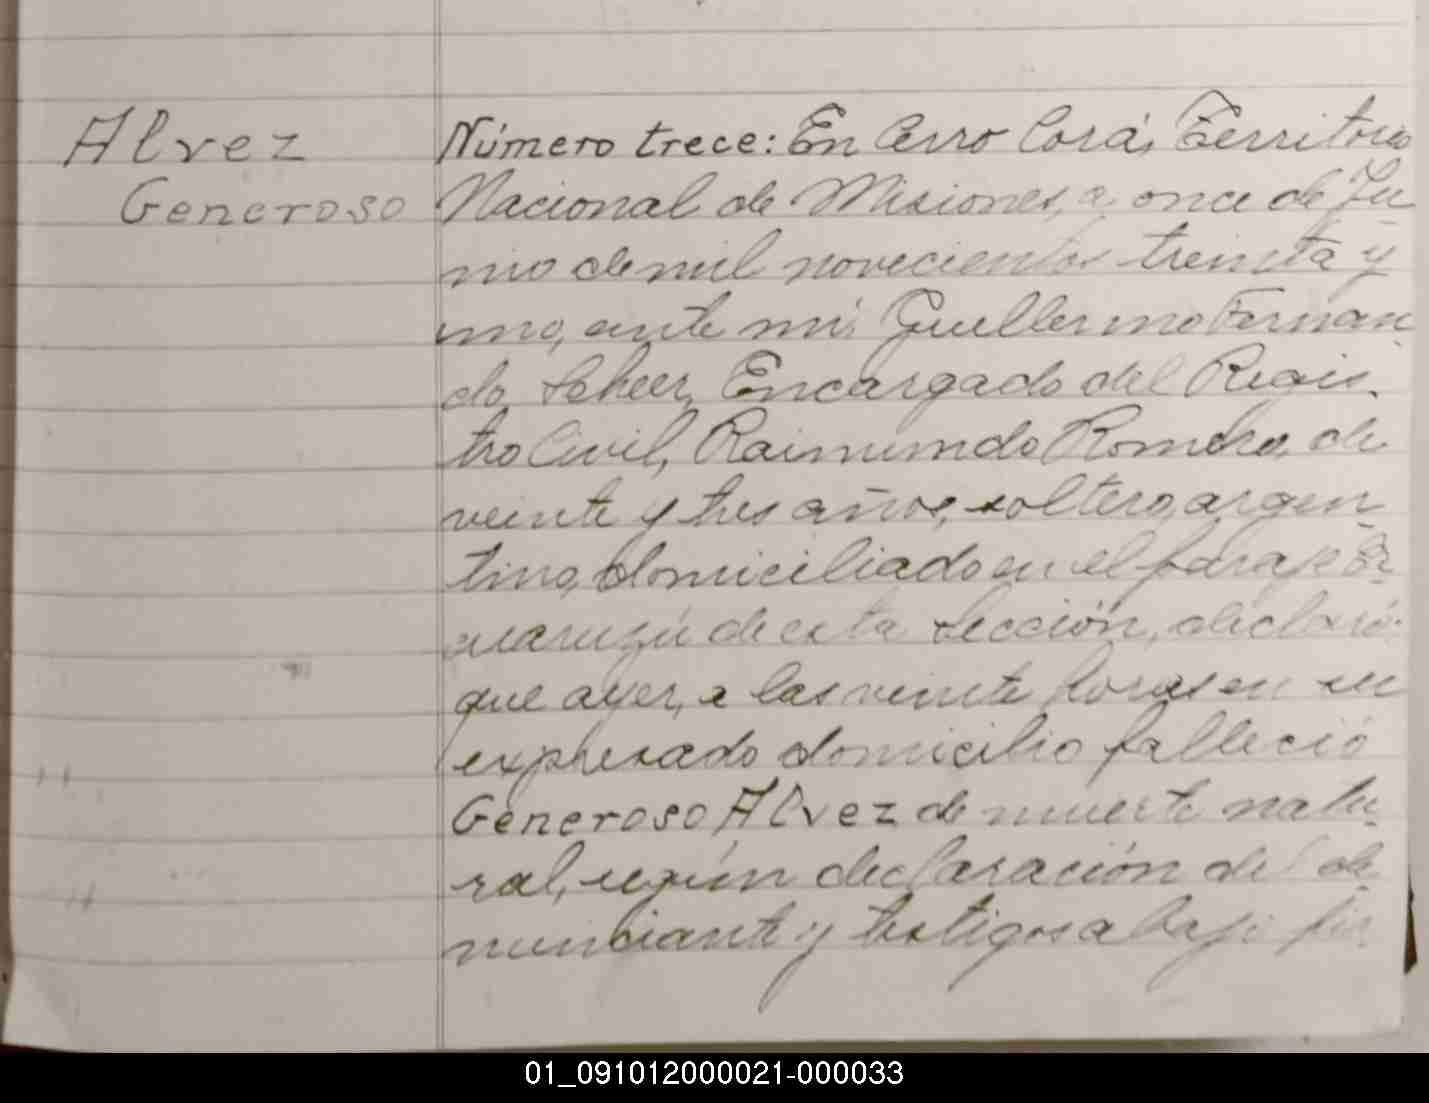 Alvez
Generoso
Número trece: En Cerro Corá, Territorio
Nacional de Misiones, a once de Ju
nio de mil novecientos treinta y
uno, ante mi, Guillermo Fernan
do Scheer, Encargado del Regis-
tro Civil, Raimundo Romero, de
veinte y tres años, soltero, argen
tino, domiciliado en el paraje
de esta sección, declaró:
que ayer, a las veinte horas en su
expresado domicilio falleció
Generoso Alvez de muerte natu-
ral, según declaración del de
nunciante y testigos abajo fir
01_091012000021-000033